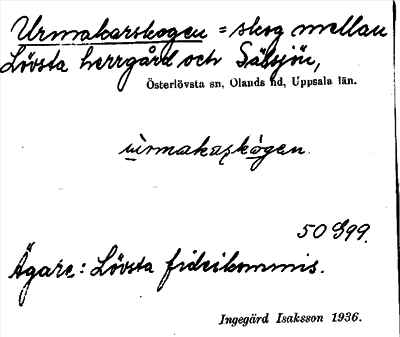 Urmakarskogen = skog mellan
Lövsta herrgård och Sälsjön,
Österlövsta sn, Olands hd, Uppsala län.
ùrmakaskógen.
50 G99.
Ägare: Lövsta fideikommis.
Ingegärd Isaksson 1936.